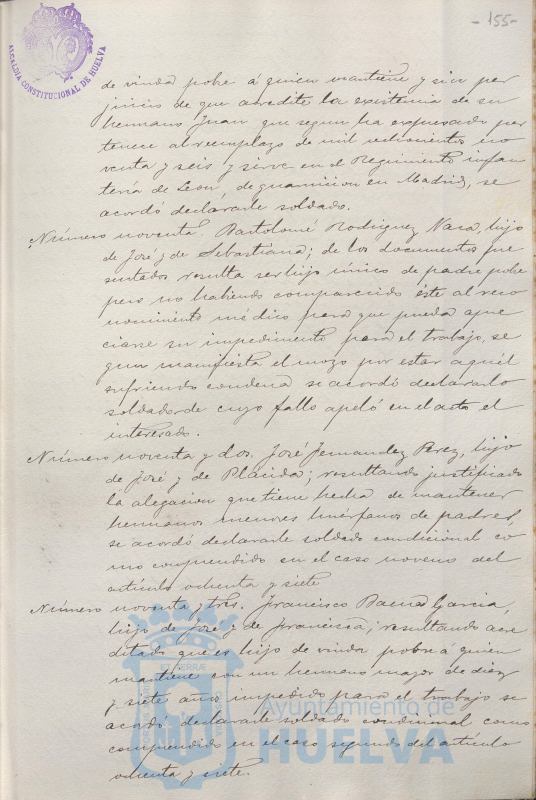 -155-
ALCALDIA CONSTITUCIONAL DE HUELVA
de viuda pobre á quien mantiene y sin per
juicio de que acredite la existencia de su
hermano Juan que segun ha expresado per
tenece al reemplazo de mil ochocientos no
venta y seis y sirve en el Regimiento infan
tería de Leon, de guarnicion en Madrid, se
acordó declararle soldado.
Número noventa. Bartolomé Rodriguez Nara, hijo
de José y de Sebastiana; de los documentos pre
sentados resulta ser hijo único de padre pobre
pero no habiendo comparecido éste al reco
nocimiento médico para que pueda apre
ciarse su impedimento para el trabajo, se
gun manifiesta el mozo por estar aquél
sufriendo condena se acordó declararlo
soldado de cuyo fallo apeló en el acto el
interesado.
Número noventa y dos. José Fernandez Perez, hijo
de José y de Plácida; resultando justificada
la alegacion que tiene hecha de mantener
hermanos menores huérfanos de padres,
se acordó declararle soldado condicional co
mo comprendido en el caso noveno del
artículo ochenta y siete
Número noventa y tres. Francisco Baena Garcia,
hijo de José y de Francisca; resultando acre
ditado que es hijo de viuda pobre á quien
mantiene con un hermano mayor de diez
y siete años impedido para el trabajo se
acordó declararle soldado condicional como
comprendido en el caso segundo del artículo
ochenta y siete.
Ayuntamiento de
HUELVA